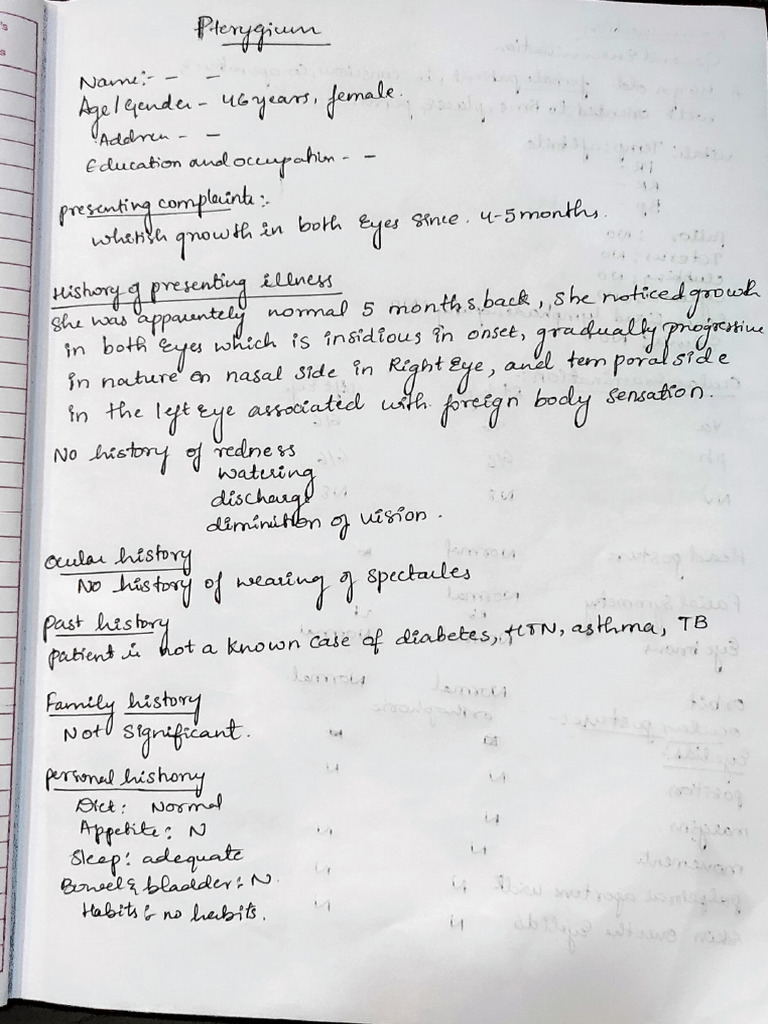 Pterygium
Name:- - -
Age/Gender - 46 years, female.
Address - -
Education and occupation - -
presenting complaints:-
whitish growth in both Eyes since 4-5 months.
History of presenting illness
She was apparently normal 5 months back, she noticed growth
in both Eyes which is insidious in onset, gradually progressive
in nature on nasal side in Right Eye, and temporal side
in the left Eye associated with foreign body sensation.
No history of redness
watering
discharge
diminition of vision.
Ocular history
No history of wearing of spectacles
Past history
patient is not a known case of diabetes, HTN, asthma, TB
Family history
Not significant.
personal history
Diet: Normal
Appetite: N
Sleep: adequate
Bowel & bladder: N.
Habits: no habits.